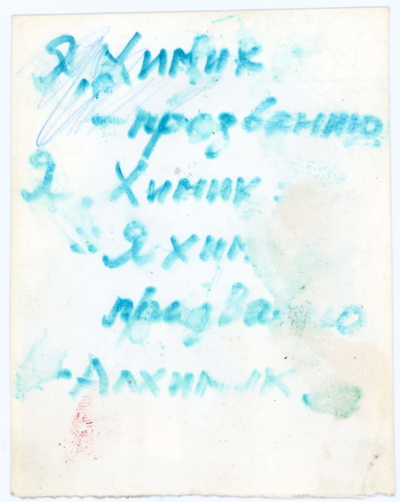 Я Химик
- прозванию
2. Химик
" Я хим
прозванию
- Алхимик